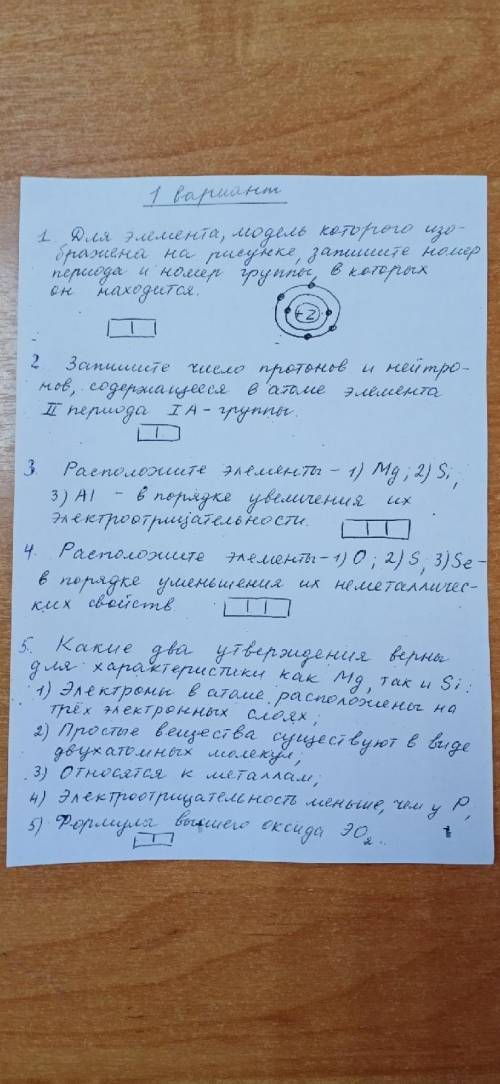 1 вариант
1. Для элемента, модель которого изо-
бражена на рисунке, запишите номер
периода и номер группы, в которых
он находится.
+Z
2 Запишите число протонов и нейтро-
нов, содержащееся в атоме элемента
II периода IA-группы.
3. Расположите элементы - 1) Mg; 2) Si,
3) Al - в порядке увеличения их
электроотрицательности.
4. Расположите элементы - 1) O; 2) S; 3) Se -
в порядке уменьшения их неметалличес-
ких свойств
5. Какие два утверждения верны
для характеристики как Mg, так и Si:
1) Электроны в атоме расположены на
трёх электронных слоях;
2) Простые вещества существуют в виде
двухатомных молекул;
3) Относятся к металлам;
4) Электроотрицательность меньше, чем у P,
5) Формула высшего оксида ЭO₂.